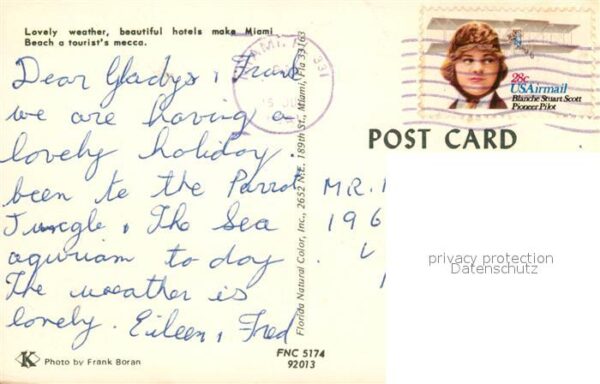 Lovely weather, beautiful hotels make Miami
Beach a tourist's mecca.
Dear Gladys, Frans
we are having a
lovely holiday.
been to the Parrot
Jungle, The Sea
aquriam to day.
The weather is
lovely. Eileen, Fred
Photo by Frank Boran
Florida Natural Color, Inc., 2652 N.E. 189th St., Miami, Fla 33163
FNC 5174
92013
MIAMI, 331
28c
USAirmail
Blanche Stuart Scott
Pioneer Pilot
POST CARD
MR.
196
privacy protection
Datenschutz